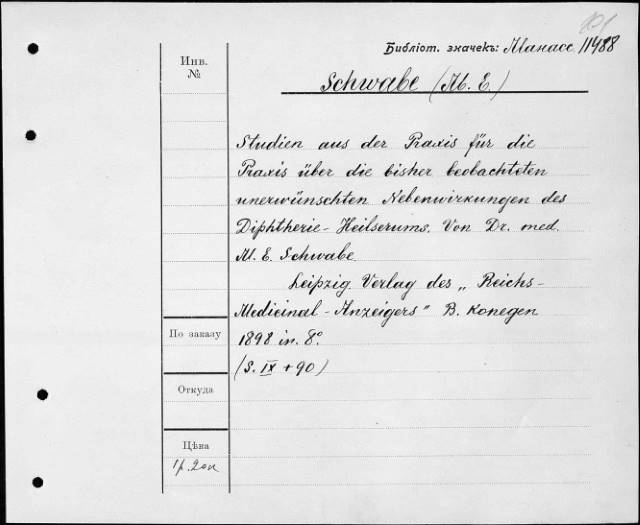 Библіот. значекъ: Манасс 11488
Инв.
№
Schwabe (M. E.)
Studien aus der Praxis für die
Praxis über die bisher beobachteten
unerwünschten Nebenwirkungen des
Diphtherie-Heilserums. Von Dr. med.
M. E. Schwabe
Leipzig Verlag des „Reichs-
Medicinal-Anzeigers" B. Konegen
По заказу
1898 in. 8º
(S. IX + 90)
Откуда
Цѣна
1р. 20к